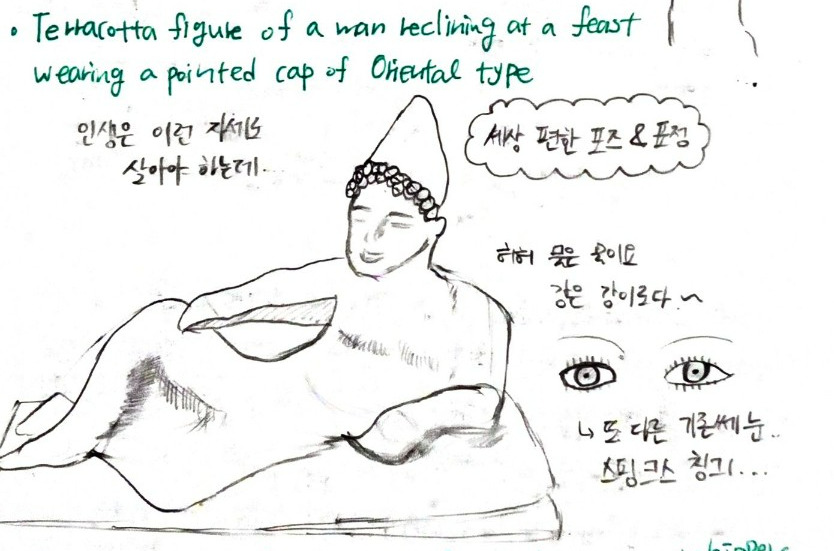 • Terracotta figure of a man reclining at a feast
wearing a pointed cap of Oriental type
인생은 이런 자세로
살아야 하는데..
세상 편한 포즈 & 표정
허허 묻은 옷이요
강은 강이로다~
↳ 또 다른 기존쎄 눈..
스핑크스 칭긔...